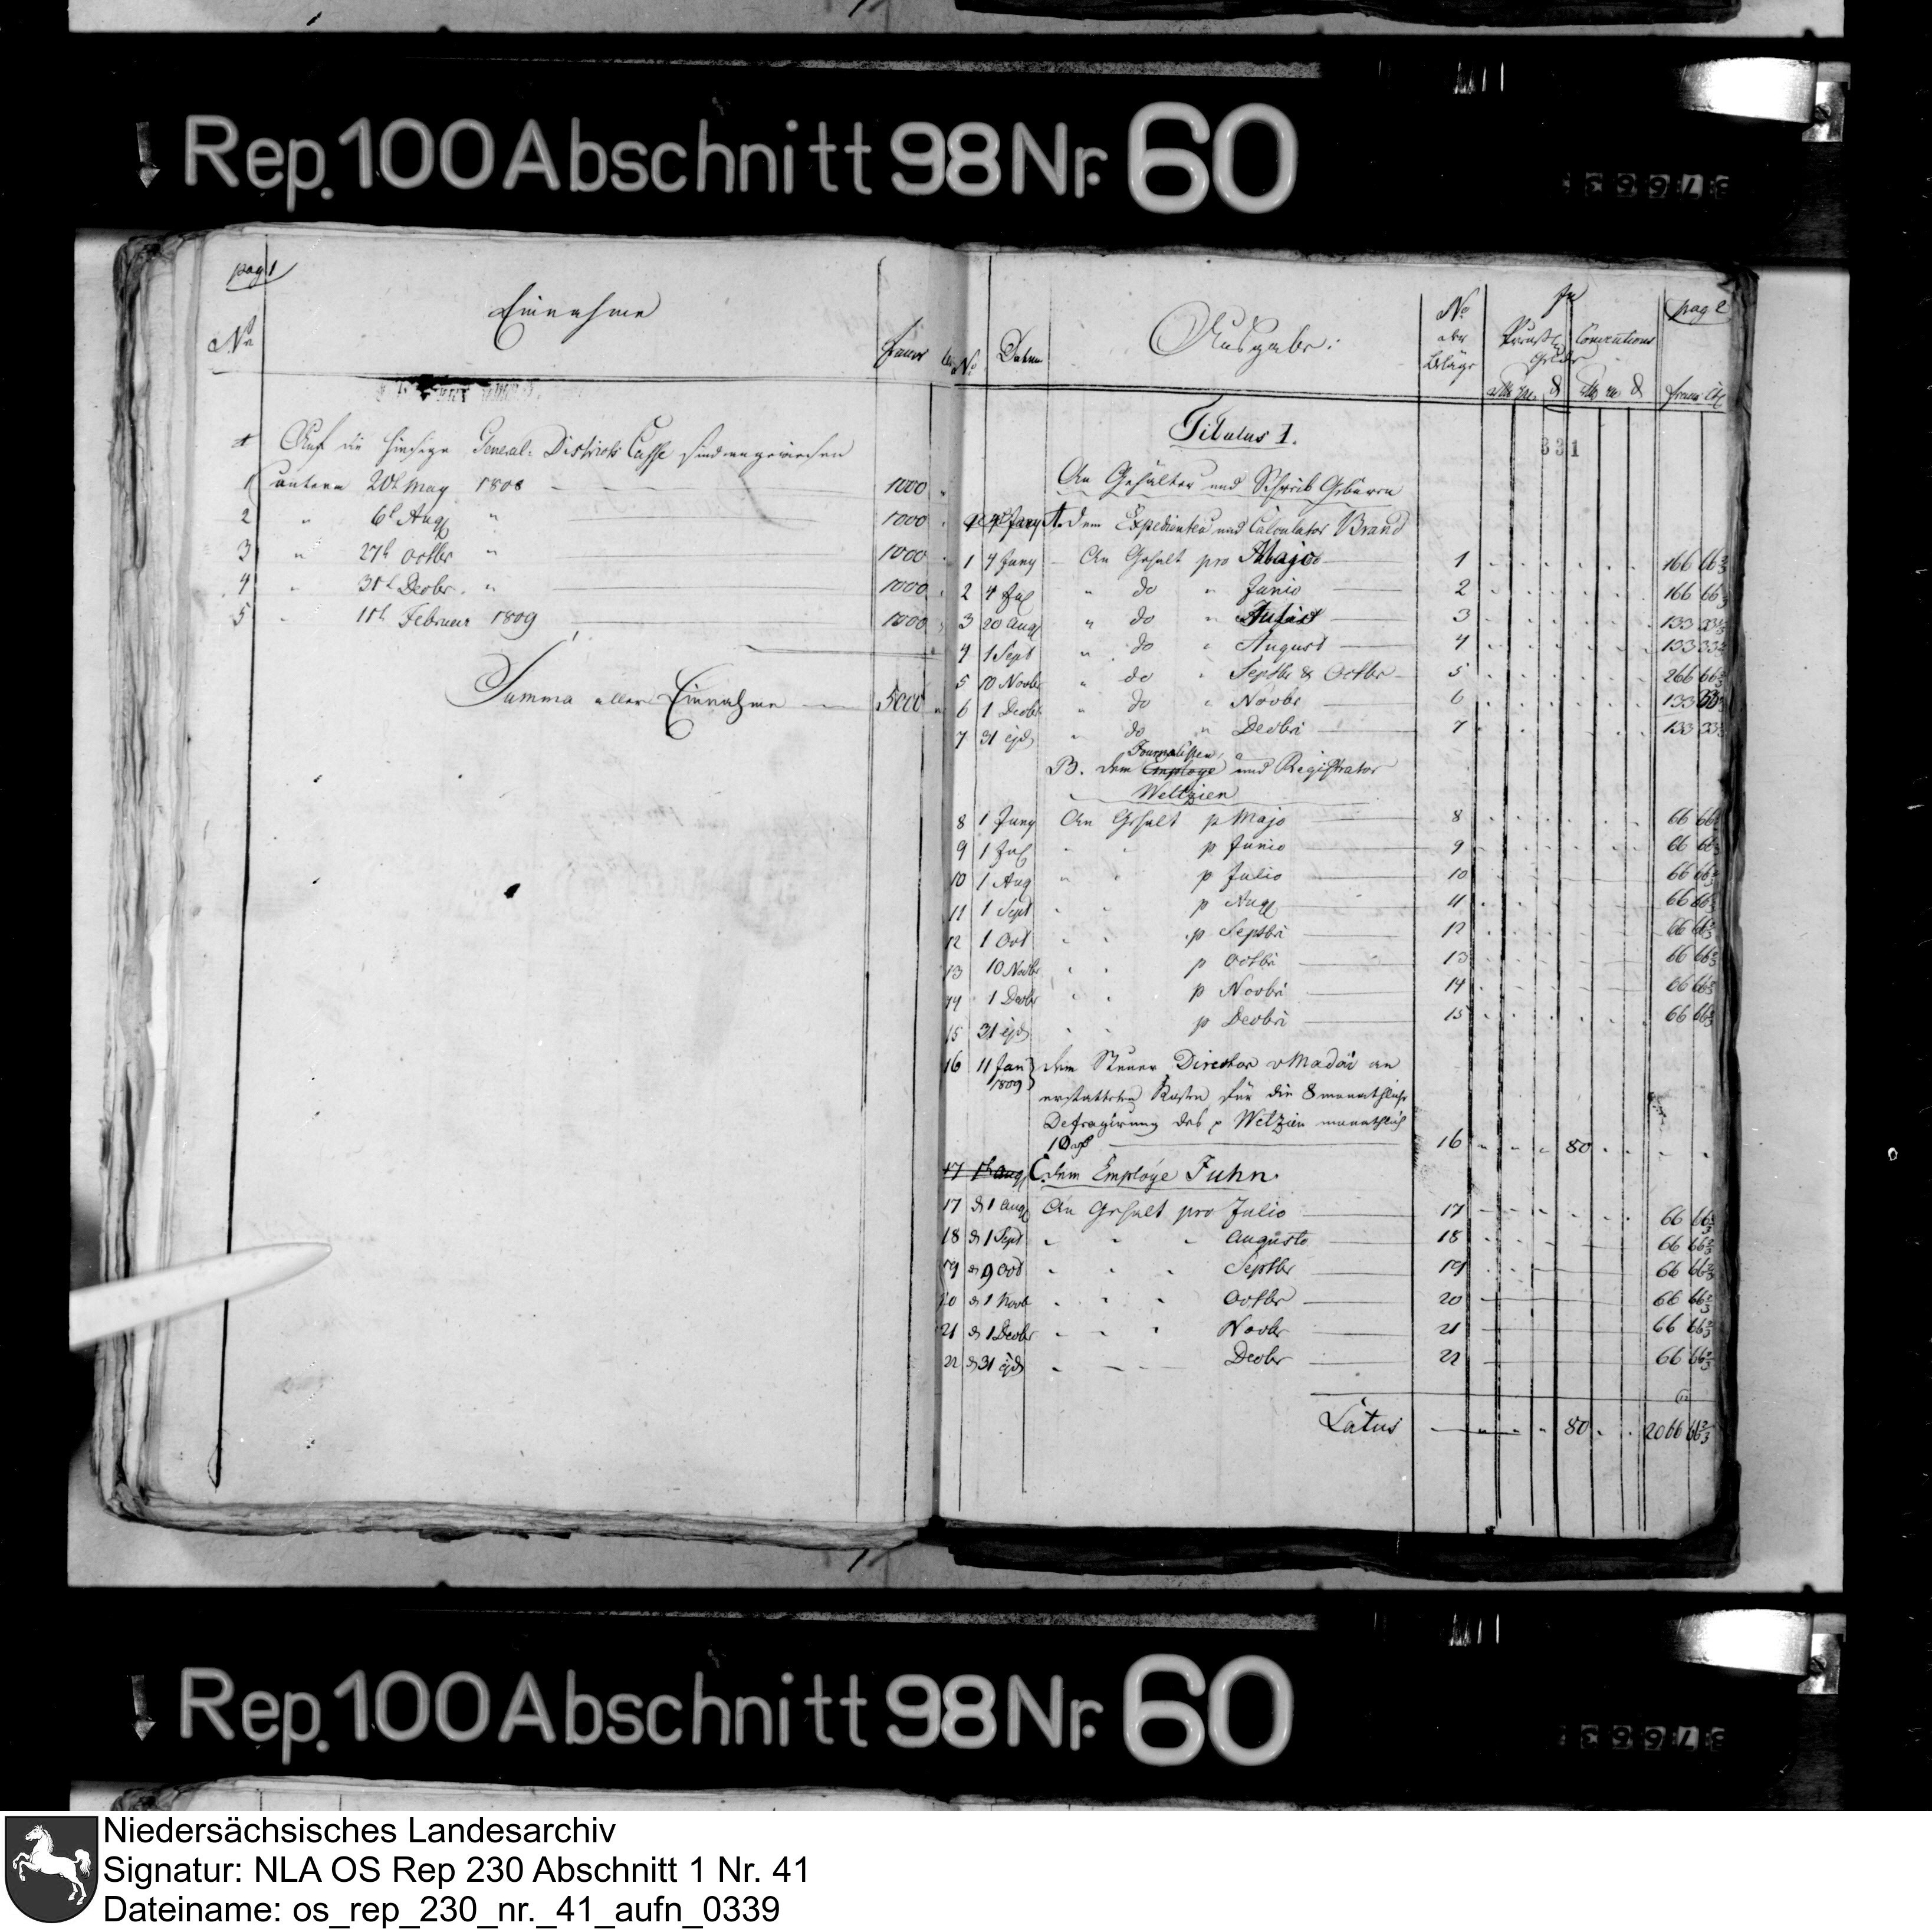 Rep. 100 Abschnitt 98 Nr. 60
pag 1
Einnahme
No
Francs
Auf die hiesige General-Districts Casse sind angewiesen
1 unterm 20t May 1808 — 1000
2 " 6t Aug " — 1000
3 " 27t Octbr " — 1000
4 " 31t Decbr. " — 1000
5 " 11t Februar 1809 — 1000
Summa aller Einnahme — 5000
pag 2
No Datum Ausgabe: No der Beläge In Preuß. Gelde Conventions Francs Ct
331
Titulus I.
An Gehälter und Schreib Gebüren
A. dem Expedienten und Calculator Brand
1 4 Juny An Gehalt pro Majo — 1 166 66 2/3
2 4 Jul " do " Junio — 2 166 66 2/3
3 20 Aug " do " — 3 133 33 1/3
4 1 Sept " do " August — 4 133 33 1/3
5 10 Novbr " do " Septbr & Octbr — 5 266 66 2/3
6 1 Decbr " do " Novbr — 6 133 33 1/3
7 31 ejd " do " Decbri — 7 133 33 1/3
Journalisten
B. dem Employe und Registrator
Weltzien
8 1 Juny An Gehalt p Majo — 8 66 66 2/3
9 1 Jul " " p Junio — 9 66 66 2/3
10 1 Aug " " p Julio — 10 66 66 2/3
11 1 Sept " " p Aug — 11 66 66 2/3
12 1 Oct " " p Septbri — 12 66 66 2/3
13 10 Novbr " " p Octbri — 13 66 66 2/3
14 1 Decbr " " p Novbri — 14 66 66 2/3
15 31 ejd " " p Decbri — 15 66 66 2/3
16 11 Jan 1809 dem Steuer Director v Madai an
erstatteten Kosten für die 8 monathliche
Defragirung des p Weltzien monathlich
10 — 16 80
17 1t Aug C. dem Employe Juhn.
17 d 1 Aug An Gehalt pro Julio — 17 66 66 2/3
18 d 1 Sept " " " Augusto — 18 66 66 2/3
19 d 9 Oct " " " Septbr — 19 66 66 2/3
20 d 1 Novb " " " Octbr — 20 66 66 2/3
21 d 1 Decbr " " " Novbr — 21 66 66 2/3
22 d 31 ejd " " Decbr — 22 66 66 2/3
Latus — 80 2066 66 2/3
Rep. 100 Abschnitt 98 Nr. 60
Niedersächsisches Landesarchiv
Signatur: NLA OS Rep 230 Abschnitt 1 Nr. 41
Dateiname: os_rep_230_nr._41_aufn_0339